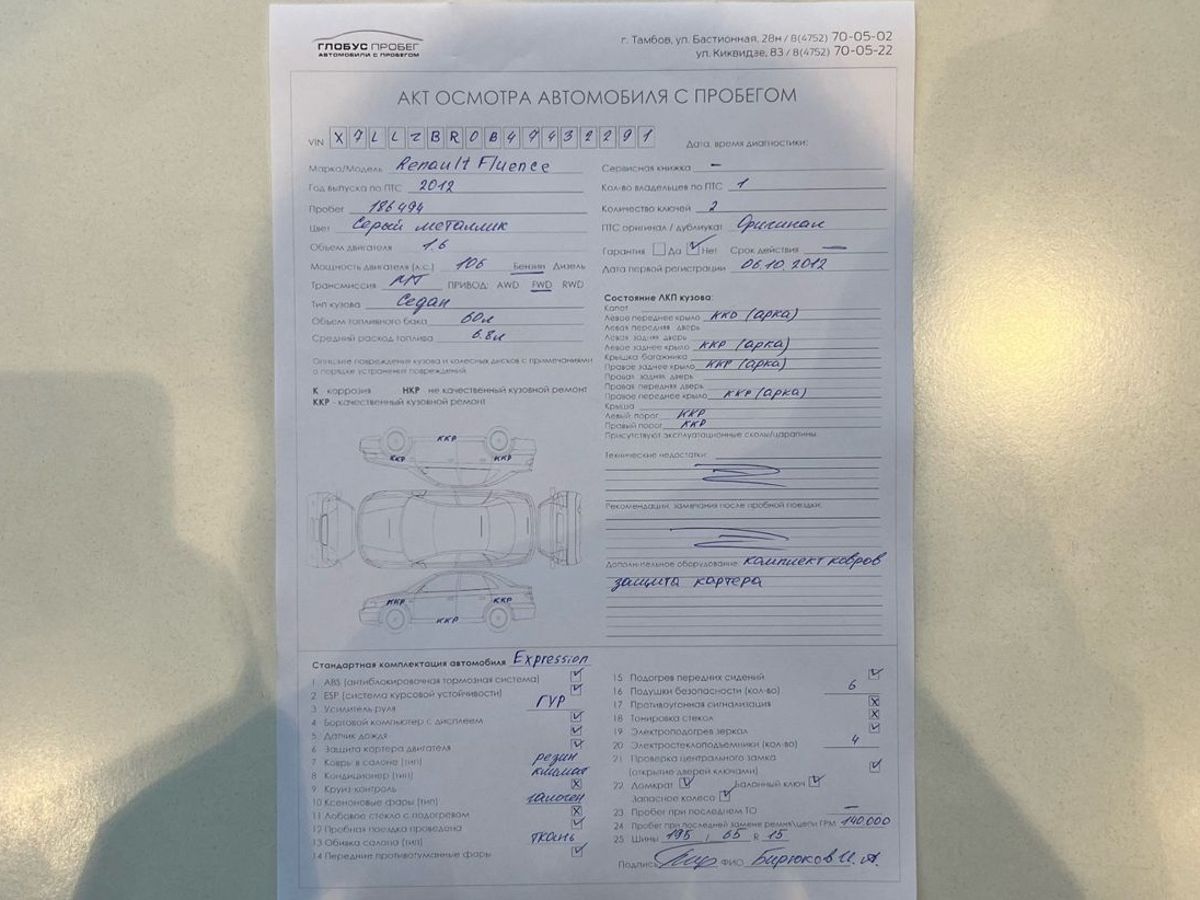 ГЛОБУС ПРОБЕГ
АВТОМОБИЛИ С ПРОБЕГОМ
г. Тамбов, ул. Бастионная, 28н / 8(4752) 70-05-02
ул. Киквидзе, 83 / 8(4752) 70-05-22
АКТ ОСМОТРА АВТОМОБИЛЯ С ПРОБЕГОМ
VIN X7LLZBR0B47432291
Дата, время диагностики:
Марка/Модель Renault Fluence
Год выпуска по ПТС 2012
Пробег 186494
Цвет Серый металлик
Объем двигателя 1.6
Мощность двигателя (л.с.) 106 Бензин Дизель
Трансмиссия МТ ПРИВОД: AWD FWD RWD
Тип кузова Седан
Объем топливного бака 60л
Средний расход топлива 6.8л
Описание повреждение кузова и колесных дисков с примечаниями
о порядке устранения повреждений
К - коррозия НКР - не качественный кузовной ремонт
ККР - качественный кузовной ремонт
ККР
ККР ККР
ККР ККР
ККР
Сервисная книжка —
Кол-во владельцев по ПТС 1
Количество ключей 2
ПТС оригинал / дубликат Оригинал
Гарантия Да Нет Срок действия —
Дата первой регистрации 06.10.2012
Состояние ЛКП кузова:
Капот
Левое переднее крыло ККР (арка)
Левая передняя дверь
Левая задняя дверь
Левое заднее крыло ККР (арка)
Крышка багажника
Правое заднее крыло ККР (арка)
Правая задняя дверь
Правая передняя дверь
Правое переднее крыло ККР (арка)
Крыша
Левый порог ККР
Правый порог ККР
Присутствуют эксплуатационные сколы/царапины.
Технические недостатки:
Рекомендации, замечания после пробной поездки:
Дополнительное оборудование: комплект ковров
защита картера
Стандартная комплектация автомобиля Expression
1 ABS (антиблокировочная тормозная система)
2 ESP (система курсовой устойчивости)
3 Усилитель руля ГУР
4 Бортовой компьютер с дисплеем
5 Датчик дождя
6 Защита картера двигателя
7 Ковры в салоне (тип) резин
8 Кондиционер (тип) климат
9 Круиз контроль
10 Ксеноновые фары (тип) галоген
11 Лобовое стекло с подогревом
12 Пробная поездка проведена
13 Обивка салона (тип) ткань
14 Передние противотуманные фары
15 Подогрев передних сидений
16 Подушки безопасности (кол-во) 6
17 Противоугонная сигнализация
18 Тонировка стекол
19 Электроподогрев зеркал
20 Электростеклоподъемники (кол-во) 4
21 Проверка центрального замка
(открытие дверей ключами)
22 Домкрат Балонный ключ
Запасное колесо
23 Пробег при последнем ТО —
24 Пробег при последней замене ремня/цепи ГРМ 140.000
25 Шины 195 / 65 R 15
Подпись ФИО Бирюков И. А.